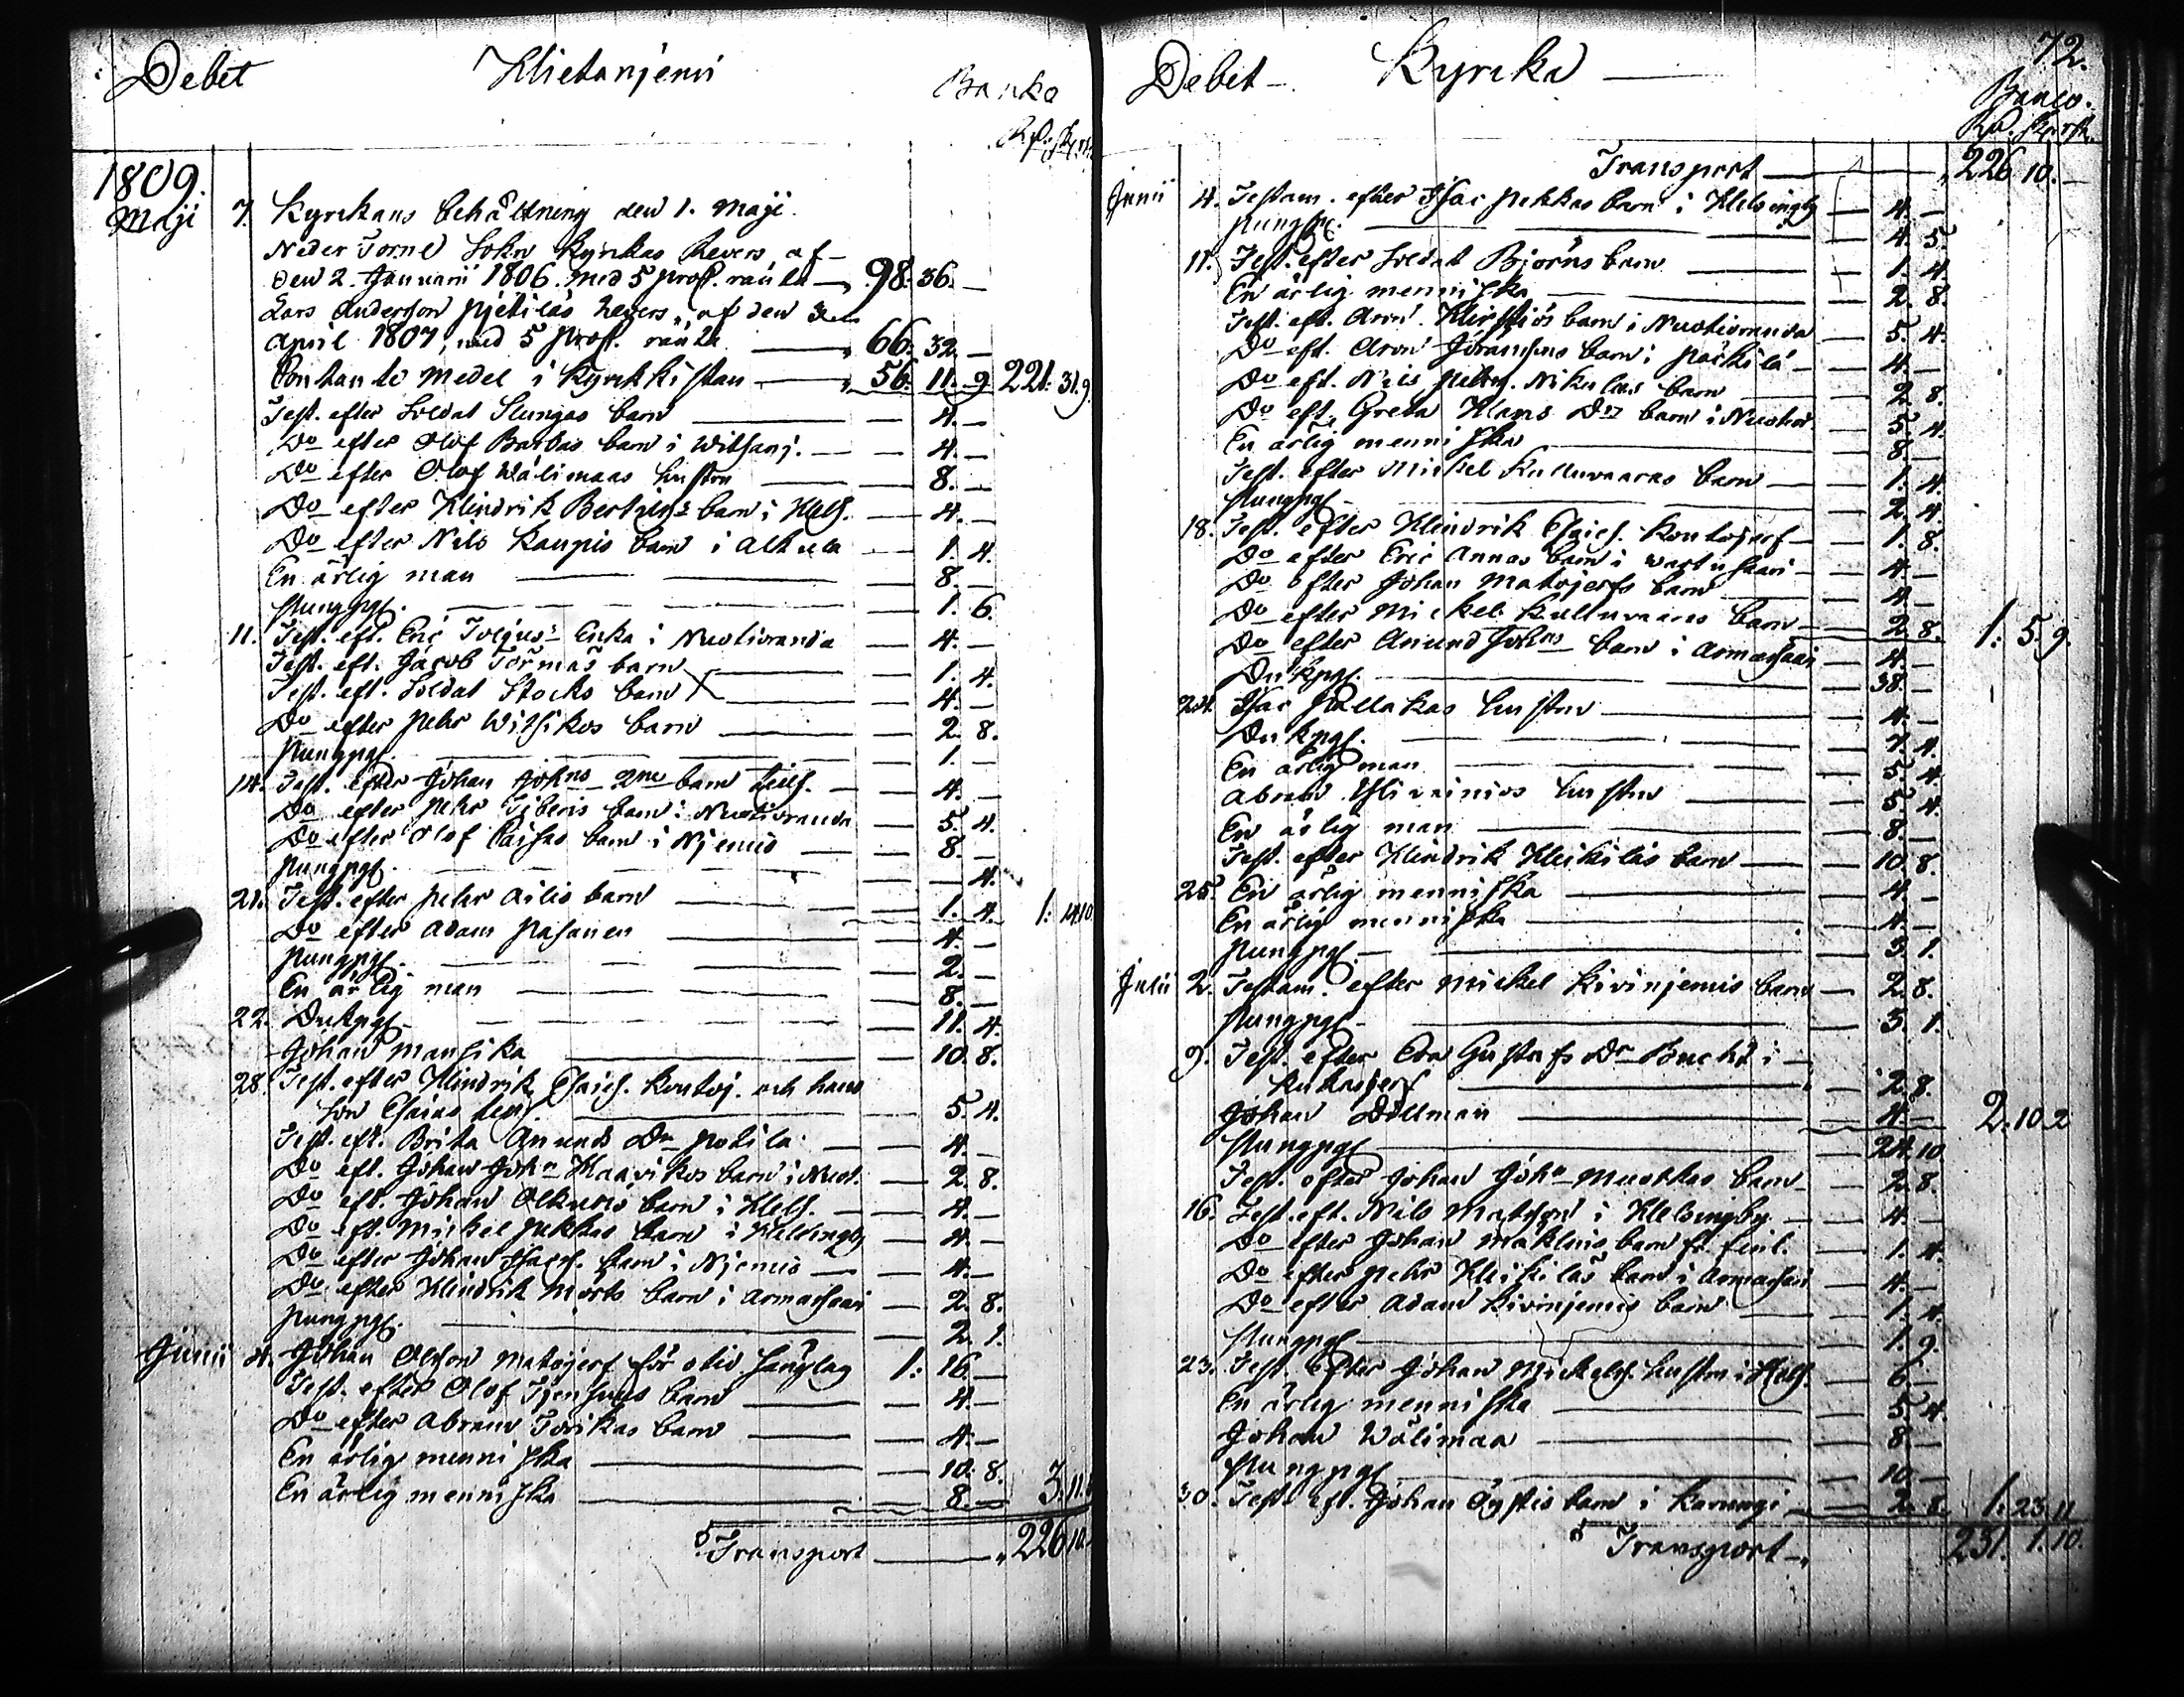 Debet Hietanjemi Banko
Rd. sk. rst.
1809.
Maji 7. Kyrckans behållning den 1. Maji.
Neder Torneå Sokn Kyrkas Revers, af
den 2. Januarii 1806. med 5 proC. ränta — 98. 36. —
Lars Anderson Pjetiläs revers, af den 3
April 1807, med 5 proC. ränta — 66. 32. —
Contante medel i Kyrkkistan — 56. 11. 9 221. 31. 9.
Test. efter Soldat Slungas barn — 4. —
Do efter Olof Barbas barn i Witsanj. — 4. —
Do efter Olof Wälimaas hustru — 8. —
Do efter Hindrik Bertils barn i Hels. — 4. —
Do efter Nils Kaupis barn i Alkula — 1. 4.
En ärlig man — 8. —
Pungpgr. — 1. 6.
11. Test. eft. Eric Enka i Nuotioranda — 4. —
Test. eft. Jacob Törmäs barn — 1. 4.
Test. eft. Soldat Stocks barn — 4. —
Do efter Pehr Witsikos barn — 2. 8.
Pungpgr. — 1. —
14. Test. efter Johan Johns 2ne barn — 4. —
Do efter Pehr barn i Nuotioranda — 5. 4.
Do efter Olof Paisas barn i Njemis — 8. —
Pungpgr. — 4.
21. Test. efter Pehr Ailis barn — 1. 4. 1: 14. 10
Do efter Adam Pasanen — 4. —
Pungpgr. — 2. —
En ärlig man — 8. —
22. Dukpgr. — 11. 4.
Johan Mansika — 10. 8.
28. Test. efter Hindrik Esaies. Kontoj. och hans
son Esaias — 5. 4.
Test. eft. Brita Anunds Dr Potila — 4. —
Do eft. Johan Johs Haavikos barn i Nuot. — 2. 8.
Do eft. Johan Alkunis barn i Hels. — 4. —
Do eft. Mickel Pekkas barn i Helsingby — 4. —
Do efter Johan Isacs. barn i Njemis — 4. —
Do efter Hindrik Morbs barn i Armassaari — 2. 8.
Pungpgr. — 2. 1.
Junii 4. Johan Olsson Matojerf för otid sänglag 1: 16. —
Test. efter Olof barn — 4. —
Do efter Abram barn — 4. —
En ärlig menniska — 10. 8.
En ärlig menniska — 8. — 3. 11.
Transport — 226 10.
72.
Debet — Kyrcka —
Banco.
Rd. sk. rst.
Transport — 226 10. —
Junii 4. Testam. efter Isac Pekkas barn i Helsingby — 4. —
Pungpgr. — 4. 5.
11. Test. efter Soldat Björns barn — 1. 4.
En ärlig menniska — 2. 8.
Test. eft. Aron barn i Nuotioranda — 5. 4.
Do eft. Aron Göransons barn i Päckilä — 4. —
Do eft. Nils Pehrs. Nikulas barn — 2. 8.
Do eft. Greta Hans Dr barn i — 5. 4.
En ärlig menniska — 8. —
Test. efter Mickel Kulluvaaras barn — 1. 4.
Pungpgr. — 2. 4.
18. Test. efter Hindrik Esaies. Kontojerf — 1. 8.
Do efter Eric Annas barn i Wartusaari — 4. —
Do efter Johan Matojerfs barn — 4. —
Do efter Mickel Kulluvaaras barn — 2. 8. 1: 5. 9.
Do efter Anund Johns barn i Armassaari — 4. —
Dukpgr. — 38. —
24. Isac Pallakas hustru — 4. —
Dukpgr. — 7. 4.
En ärlig man — 5. 4.
Abram hustru — 5. 4.
En ärlig man — 8. —
Test. efter Hindrik Heikiläs barn — 10. 8.
25. En ärlig menniska — 4. —
En ärlig menniska — 4. —
Pungpgr. — 3. 1.
Julii 2. Testam. efter Mickel Kivinjemis barn — 2. 8.
Pungpgr. — 3. 1.
9. Test. efter Eva Gustafs Dr Bucht i
Kukasjerf — 2. 8.
Johan Dillman — 4. — 2. 10. 2
Pungpgr. — 24. 10
Test. efter Johan Johs Muotkas barn — 2. 8.
16. Test. eft. Nils Matsson i Helsingby — 4. —
Do efter Johan barn fr. finl. — 1. 4.
Do efter Pehr Heikiläs barn i Armassari — 4. —
Do efter Adam Kivinjemis barn — 1. 4.
Pungpgr. — 1. 9.
23. Test. efter Johan Mickels. hustru i Hels. — 6. —
En ärlig menniska — 5. 4.
Johan Wälimaa — 8. —
Pungpgr. — 10. —
30. Test. eft. Johan barn i Karungi — 2. 8. 1: 23. 11
Transport — 231. 1. 10.